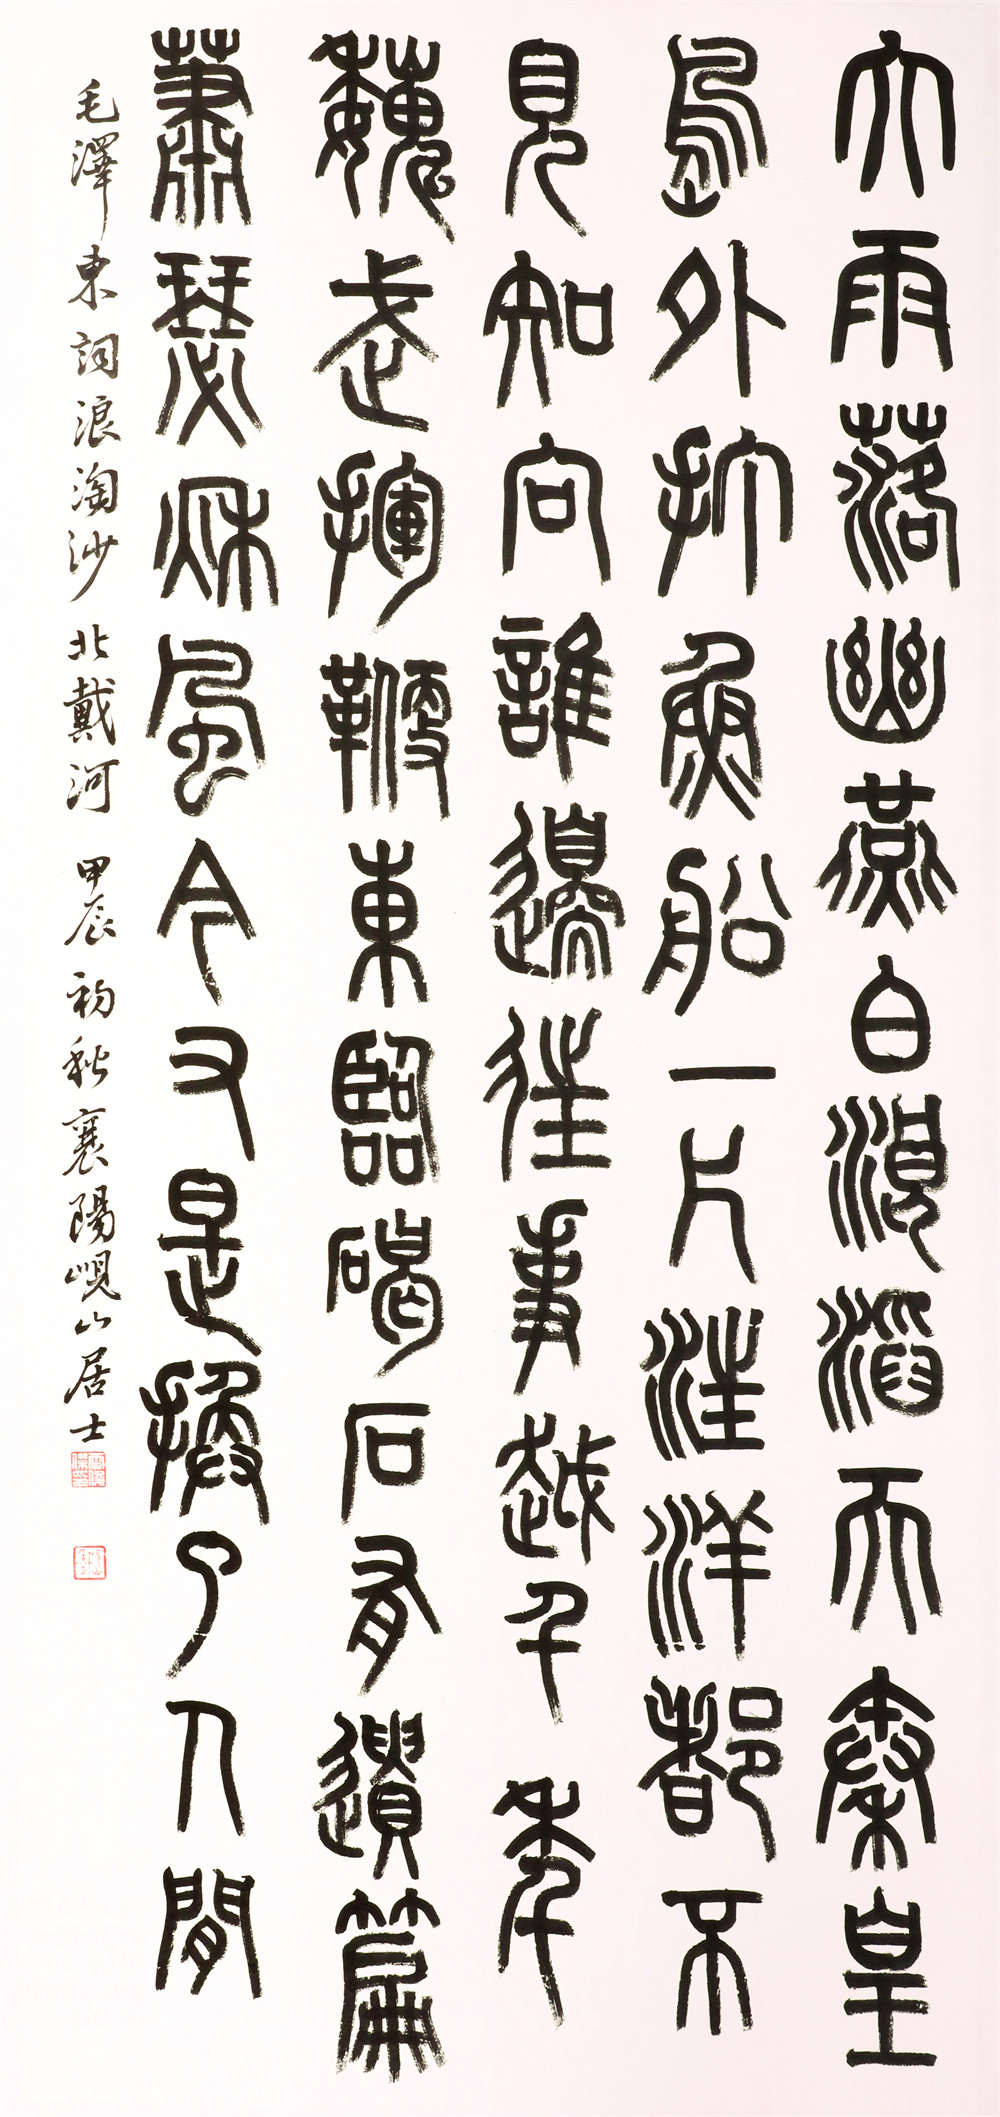 大雨落幽燕白浪滔天秦皇
島外打魚船一片汪洋都不
見知向誰邊往事越千年
魏武揮鞭東臨碣石有遺篇
蕭瑟秋風今又是換了人間
毛澤東詞浪淘沙北戴河 甲辰初秋襄陽峴山居士